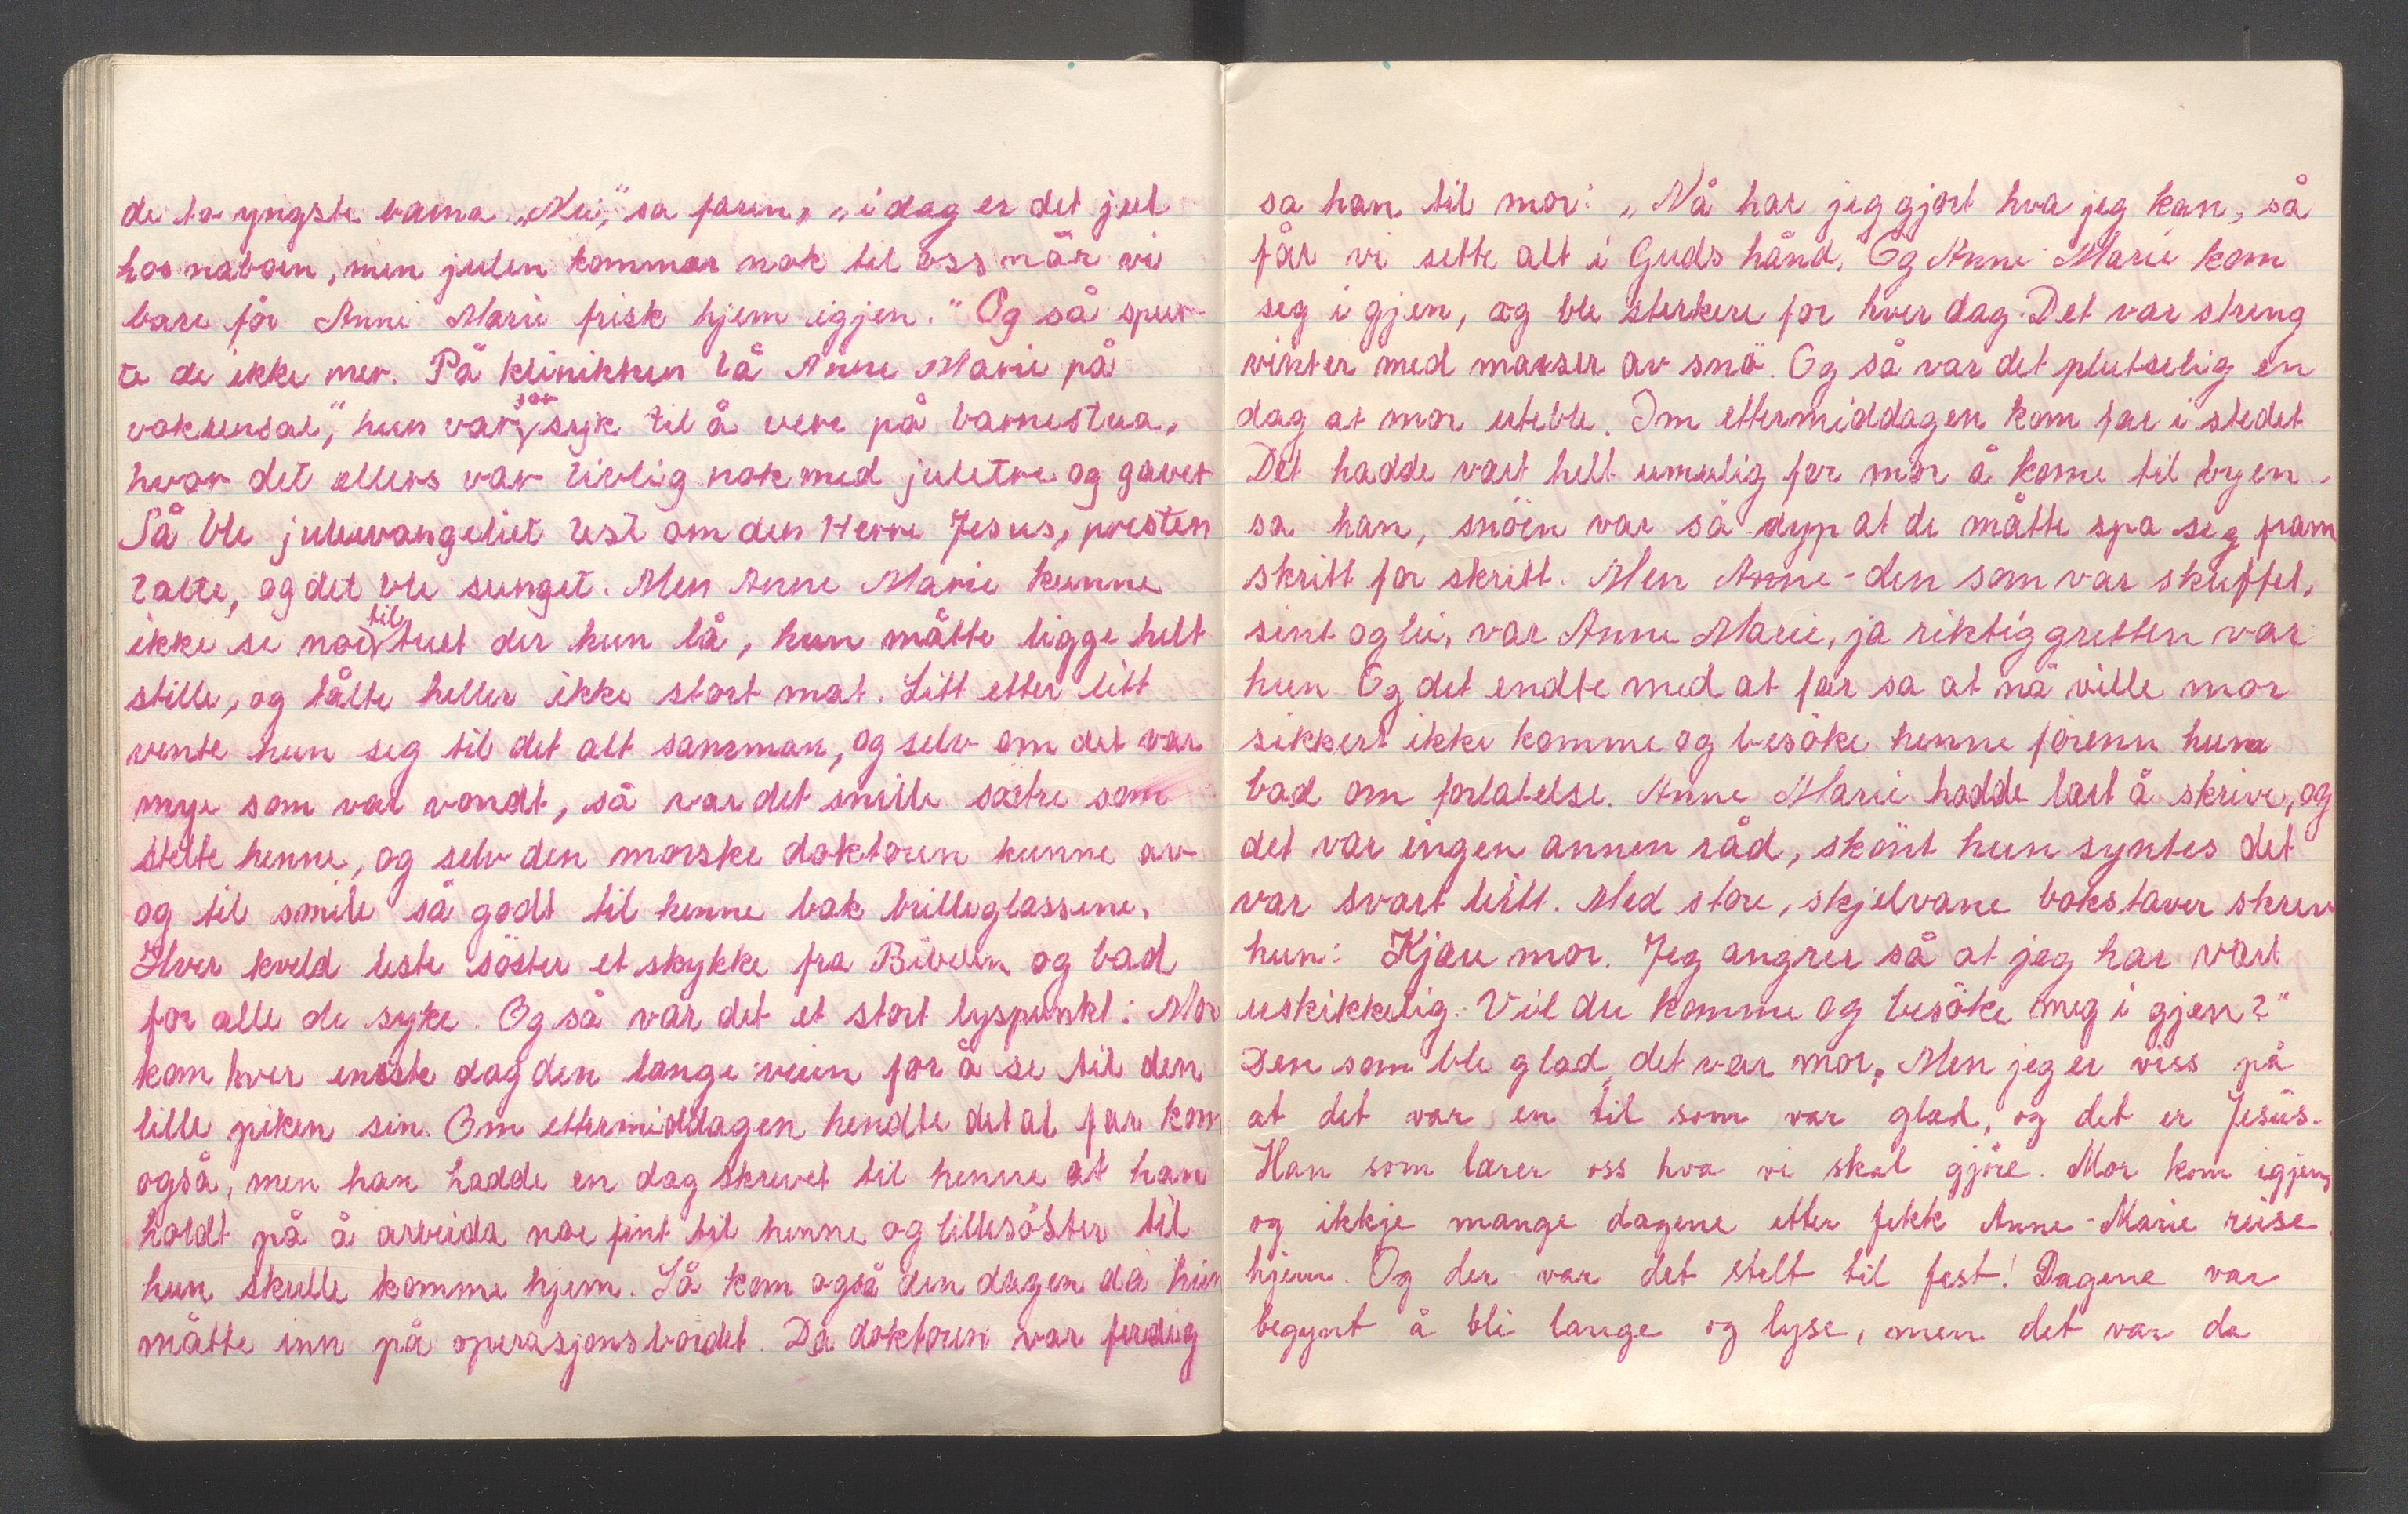 de to yngste barna „Nei," sa faren, „i dag er det jul
hos naboen, men julen kommer nok til oss når vi
bare får Anne Marie frisk hjem igjen." Og så spur-
te de ikke mer. På klinikken lå Anne Marie på
voksensal", hun var for syk til å vere på barnestua,
hvor det ellers var livlig nok med juletre og gaver
Så ble juleevangeliet lest om den Herre Jesus, presten
talte, og det ble sunget. Men Anne Marie kunne
ikke se noe til treet der hun lå, hun måtte ligge helt
stille, og tålte heller ikke stort mat. Litt etter litt
vente hun seg til det alt samman, og selv om det var
mye som var vondt, så var det snille søstre som
stelte henne, og selv den morske doktoren kunne av
og til smile så godt til henne bak brilleglassene.
Hver kveld leste söster et stykke fra Bibelen og bad
for alle de syke. Og så var det et stort lyspunkt: Mor
kom hver eneste dag den lange veien for å se til den
lille piken sin. Om ettermiddagen hendte det at far kom
også, men han hadde en dag skrevet til henne at han
holdt på å arbeida noe fint til henne og lillesöster til
hun skulle komme hjem. Så kom også den dagen da hun
måtte inn på operasjonsbordet. Da doktoren var ferdig
sa han til mor: „Nå har jeg gjort hva jeg kan, så
får vi sette alt i Guds hånd." Og Anne Marie kom
seg i gjen, og ble sterkere for hver dag. Det var streng
vinter med masser av snö. Og så var det plutselig en
dag at mor uteble. Om ettermiddagen kom far i stedet
Det hadde vart helt umulig for mor å kome til byen.
sa han, snöen var så dyp at de måtte spa seg fram
skritt for skritt. Men Anne - den som var skuffet,
sint og lei, var Anne Marie, ja riktig gretten var
hun Og det endte med at far sa at nå ville mor
sikkert ikke komme og besöke henne förenn hun
bad om forlatelse. Anne Marie hadde lart å skrive, og
det var ingen annen råd, skönt hun syntes det
var svart leitt. Med store, skjelvane bokstaver skrev
hun: Kjære mor. Jeg angrer så at jeg har vart
uskikkelig. Vil du komme og besöke meg i gjen?"
Den som ble glad, det var mor. Men jeg er viss på
at det var en til som var glad, og det er Jesus.
Han som lærer oss hva vi skal gjöre. Mor kom igjen,
og ikkje mange dagene etter fekk Anne-Marie reise
hjem. Og der var det stelt til fest! Dagene var
begynt å bli lange og lyse, men det var da